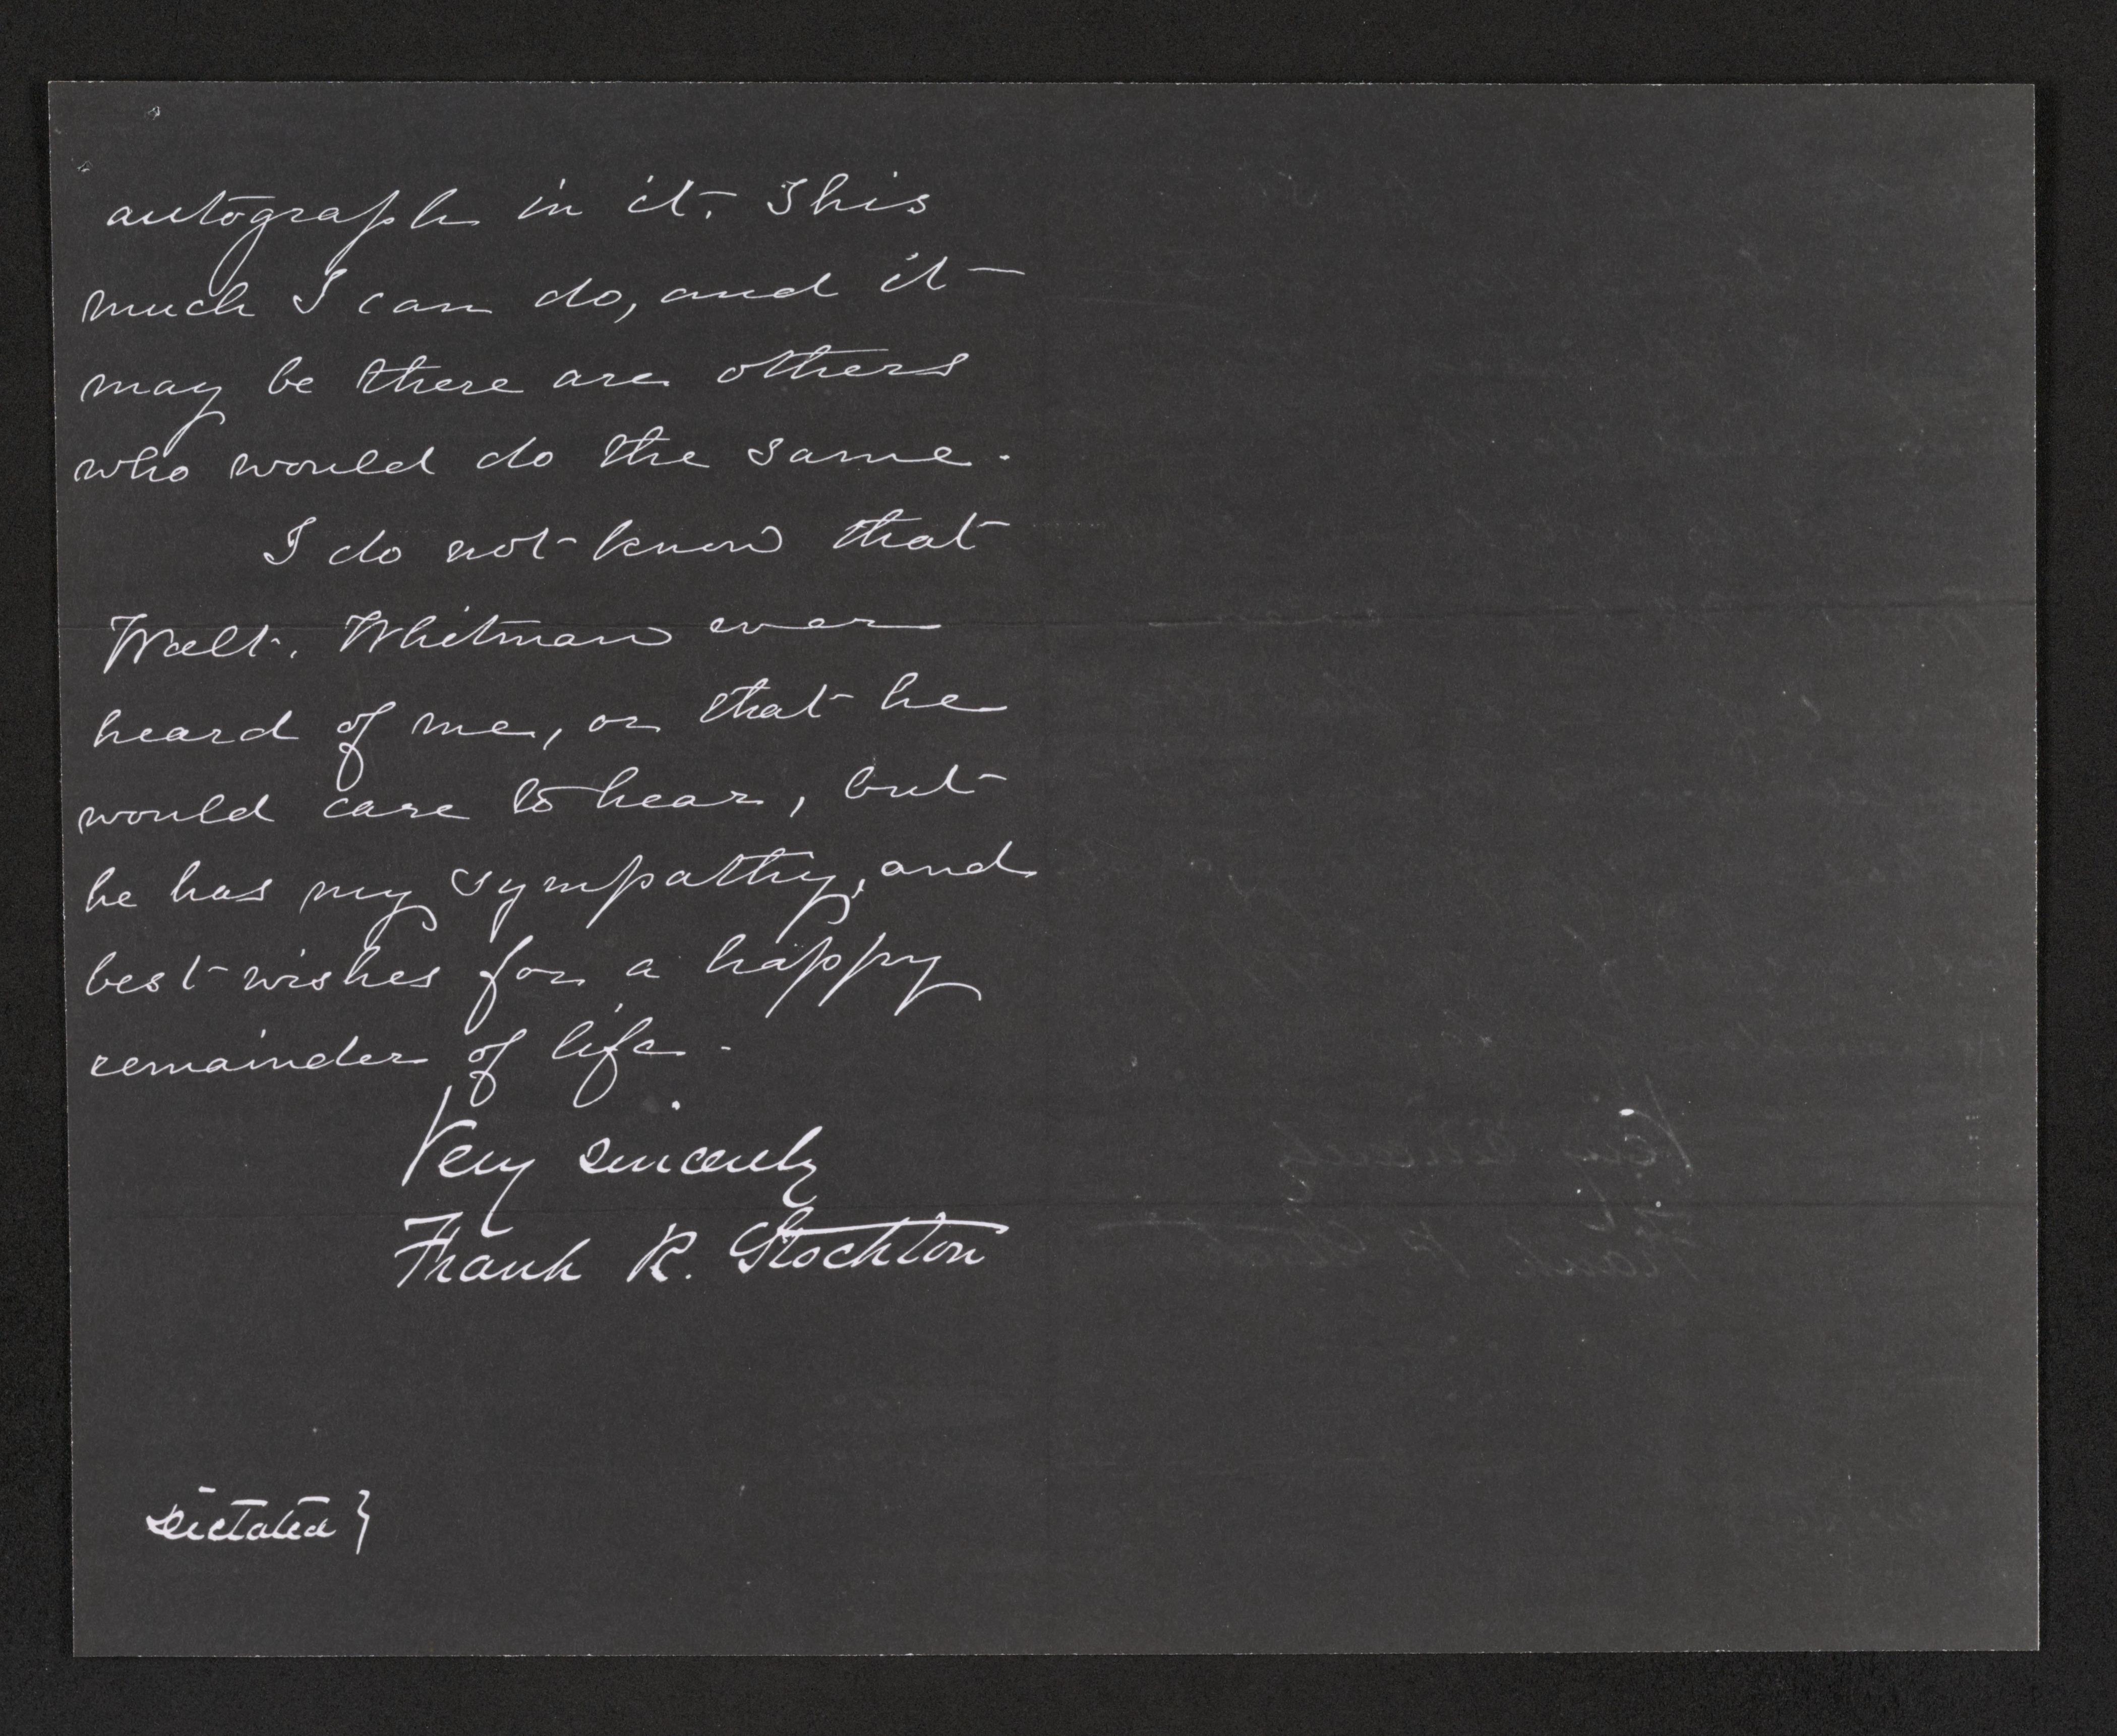 autograph in it. This
much I can do, and it
may be there are others
who would do the same.
I do not know that
Walt. Whitman ever
heard of me, or that he
would care to hear, but
he has my sympathy, and
best wishes for a happy
remainder of life.
Very sincerely
Frank R. Stockton
Dictated }